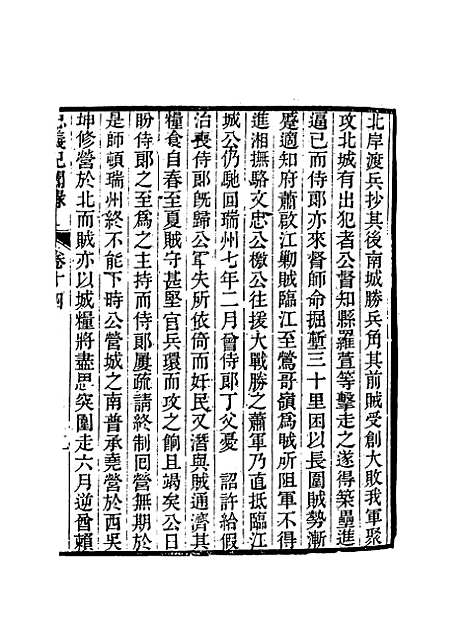 北岸渡兵抄其後南城勝兵角其前賊受創大敗我軍聚
攻北城有出犯者公督知縣羅萱等擊走之遂得築壘進
逼已而侍郎亦來督師命掘塹三十里困以長圍賊勢漸
蹙適知府蕭啟江勦賊臨江至鶯哥嶺為賊所阻軍不得
進湘撫駱文忠公檄公往援大戰勝之蕭軍乃直抵臨江
城公仍馳回瑞州七年二月曾侍郎丁父憂　詔許給假
治喪侍郎旣歸公軍失所依倚而奸民又潛與賊通濟其
糧食自春至夏賊守甚堅官兵環而攻之餉且竭矣公日
盼侍郎之至為之主持而侍郎屢疏請終制囘營無期於
是師頓瑞州終不能下時公營城之南普承堯營於西吳
坤修營於北而賊亦以城糧將盡思突圍走六月逆酋賴
忠義紀聞錄　卷十四